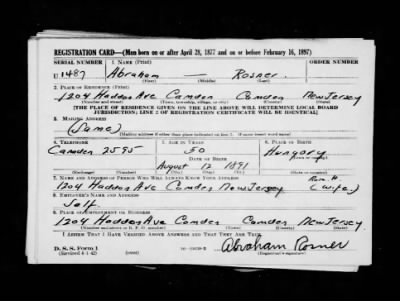 REGISTRATION CARD—(Men born on or after April 28, 1877 and on or before February 16, 1897)
SERIAL NUMBER 1. NAME (Print) ORDER NUMBER
U 1487 Abraham — Rosner
2. PLACE OF RESIDENCE (Print)
1204 Haddon Ave Camden Camden New Jersey
(Number and street) (Town, township, village, or city) (County) (State)
[THE PLACE OF RESIDENCE GIVEN ON THE LINE ABOVE WILL DETERMINE LOCAL BOARD
JURISDICTION; LINE 2 OF REGISTRATION CERTIFICATE WILL BE IDENTICAL]
3. MAILING ADDRESS
(Same)
[Mailing address if other than place indicated on line 2. If same insert word same]
4. TELEPHONE 5. AGE IN YEARS 6. PLACE OF BIRTH
Camden 2595 50 Hungary
DATE OF BIRTH
August 12 1891
(Exchange) (Number) (Mo.) (Day) (Yr.) (State or country)
7. NAME AND ADDRESS OF PERSON WHO WILL ALWAYS KNOW YOUR ADDRESS
1204 Haddon Ave Camden New Jersey (wife)
8. EMPLOYER'S NAME AND ADDRESS
Self
9. PLACE OF EMPLOYMENT OR BUSINESS
1204 Haddon Ave Camden Camden New Jersey
(Number and street or R. F. D. number) (Town) (County) (State)
I AFFIRM THAT I HAVE VERIFIED ABOVE ANSWERS AND THAT THEY ARE TRUE.
D. S. S. Form 1
(Revised 4-1-42) (over)
Abraham Rosner
(Registrant's signature)